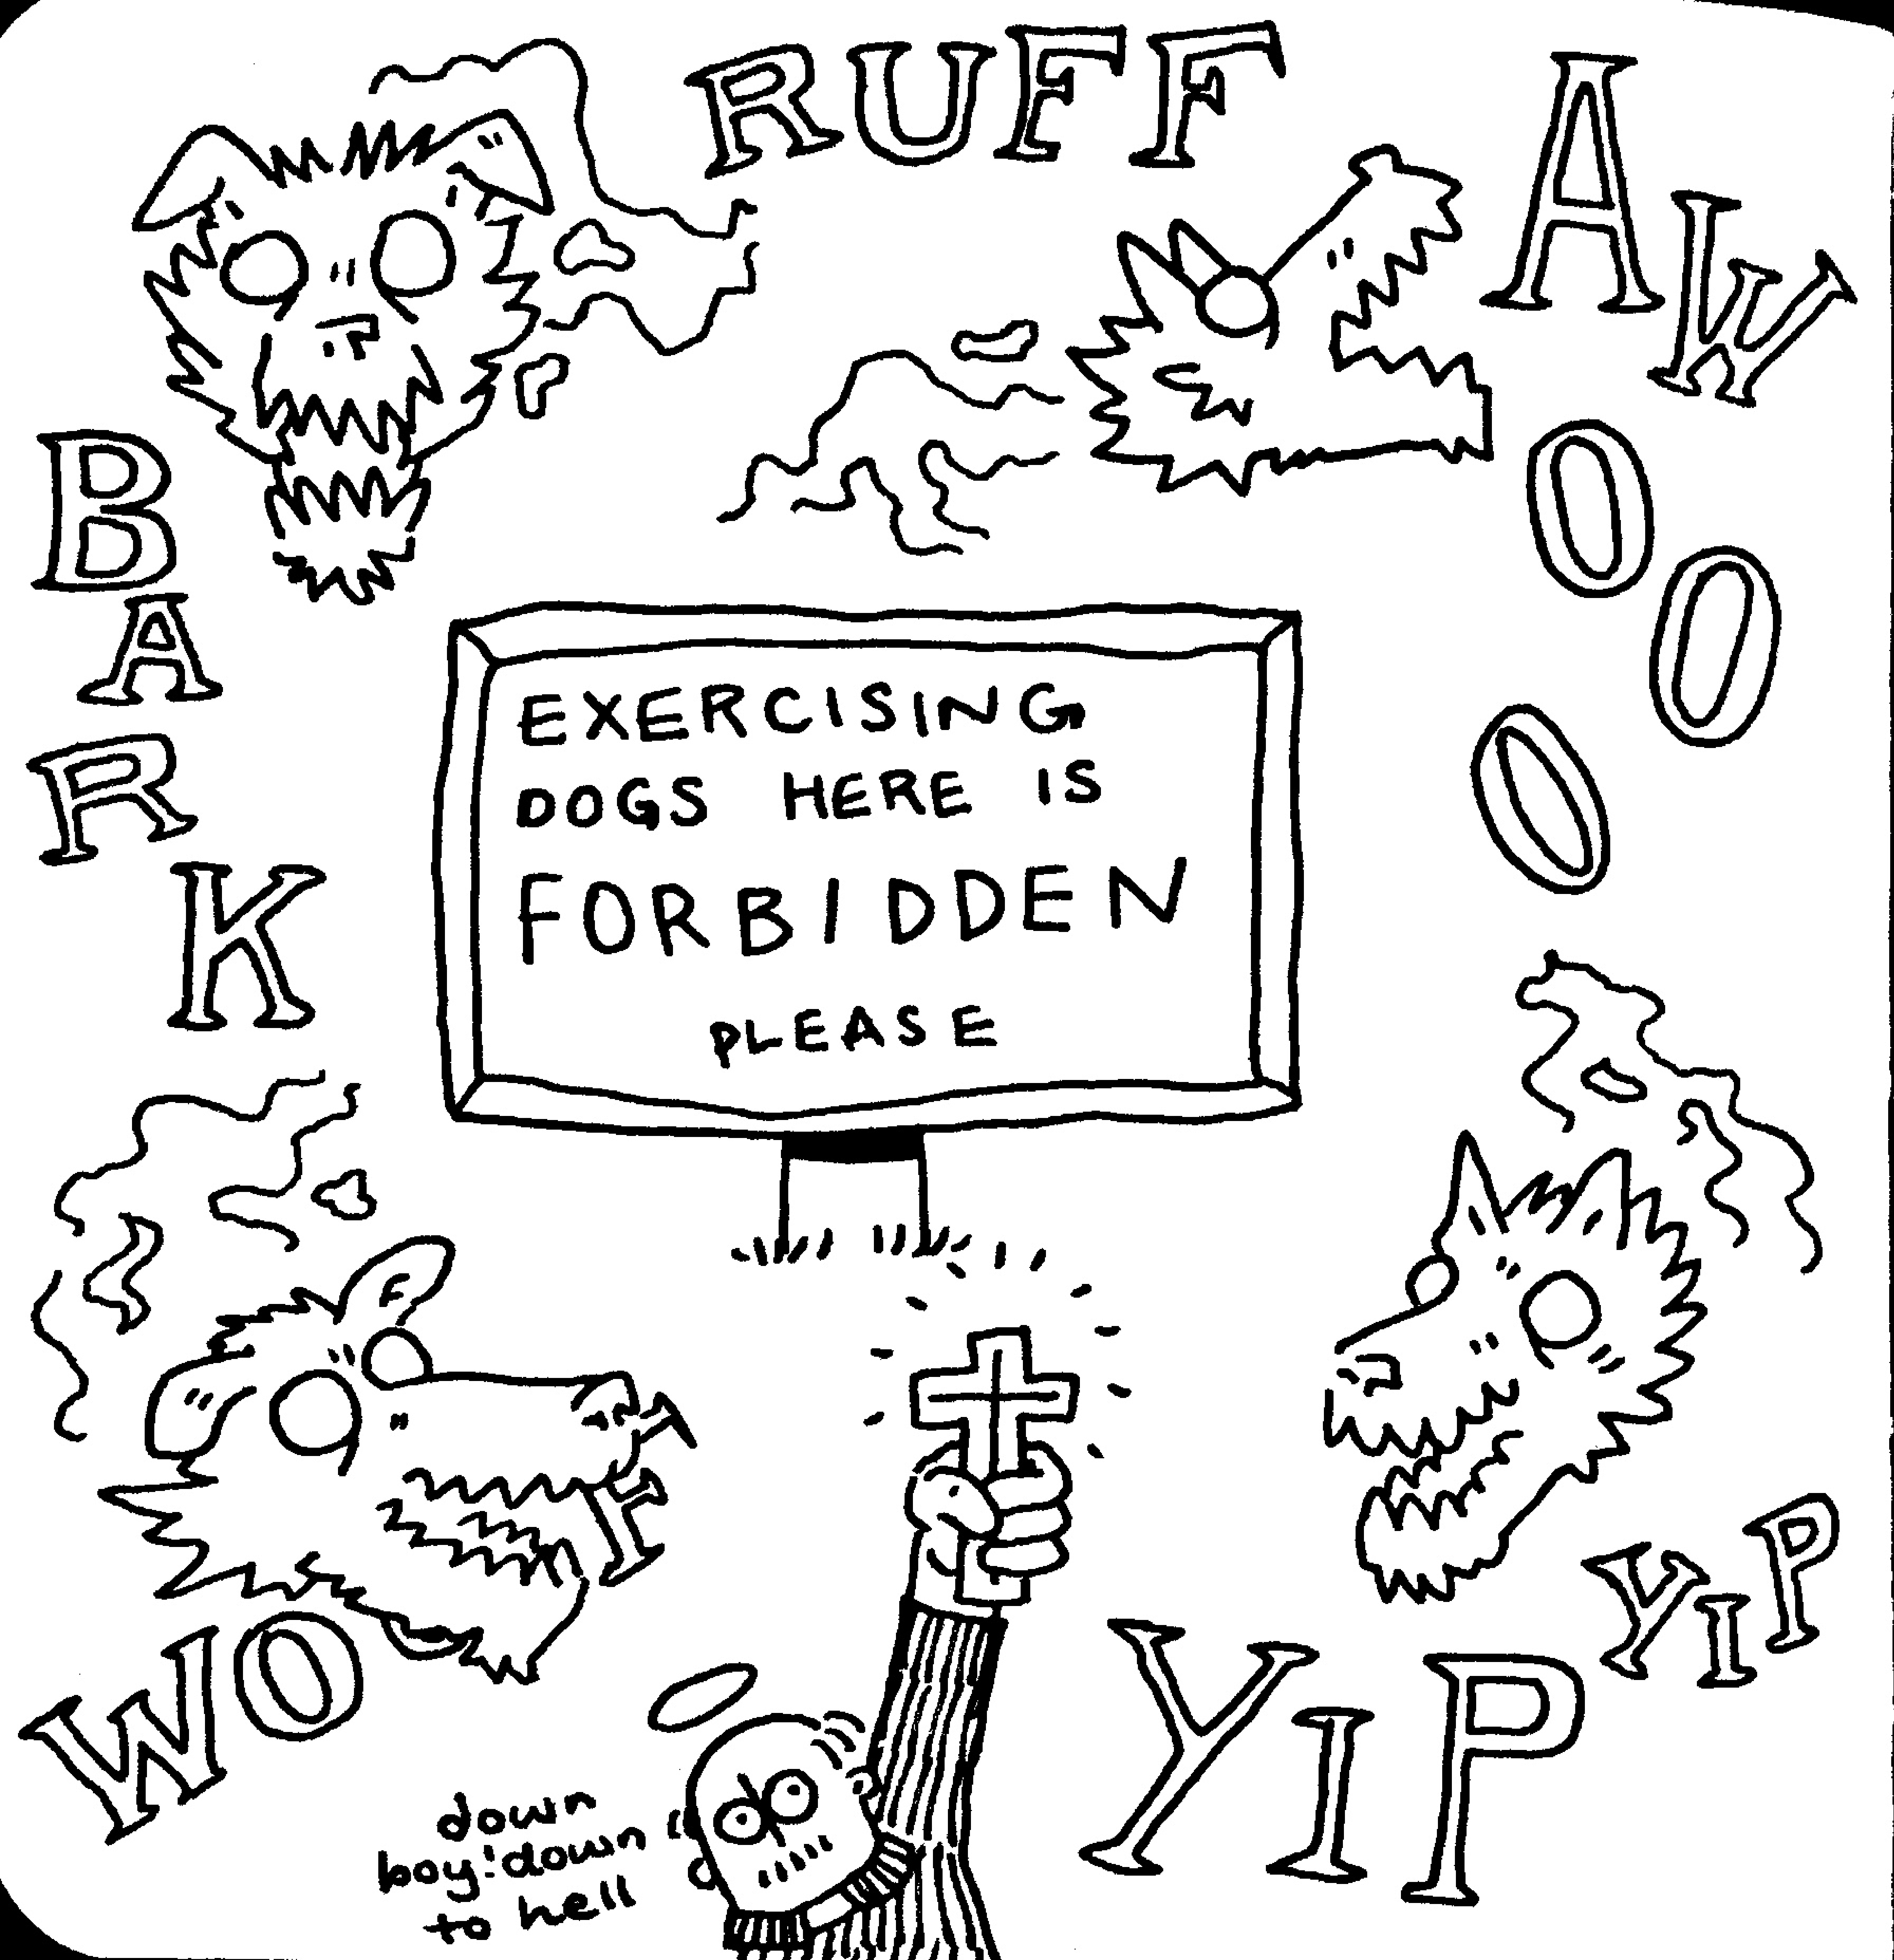 RUFF
AWOOO
BARK
EXERCISING
DOGS HERE IS
FORBIDDEN
PLEASE
WOOF
YIP
YIP
down
boy! down
to hell